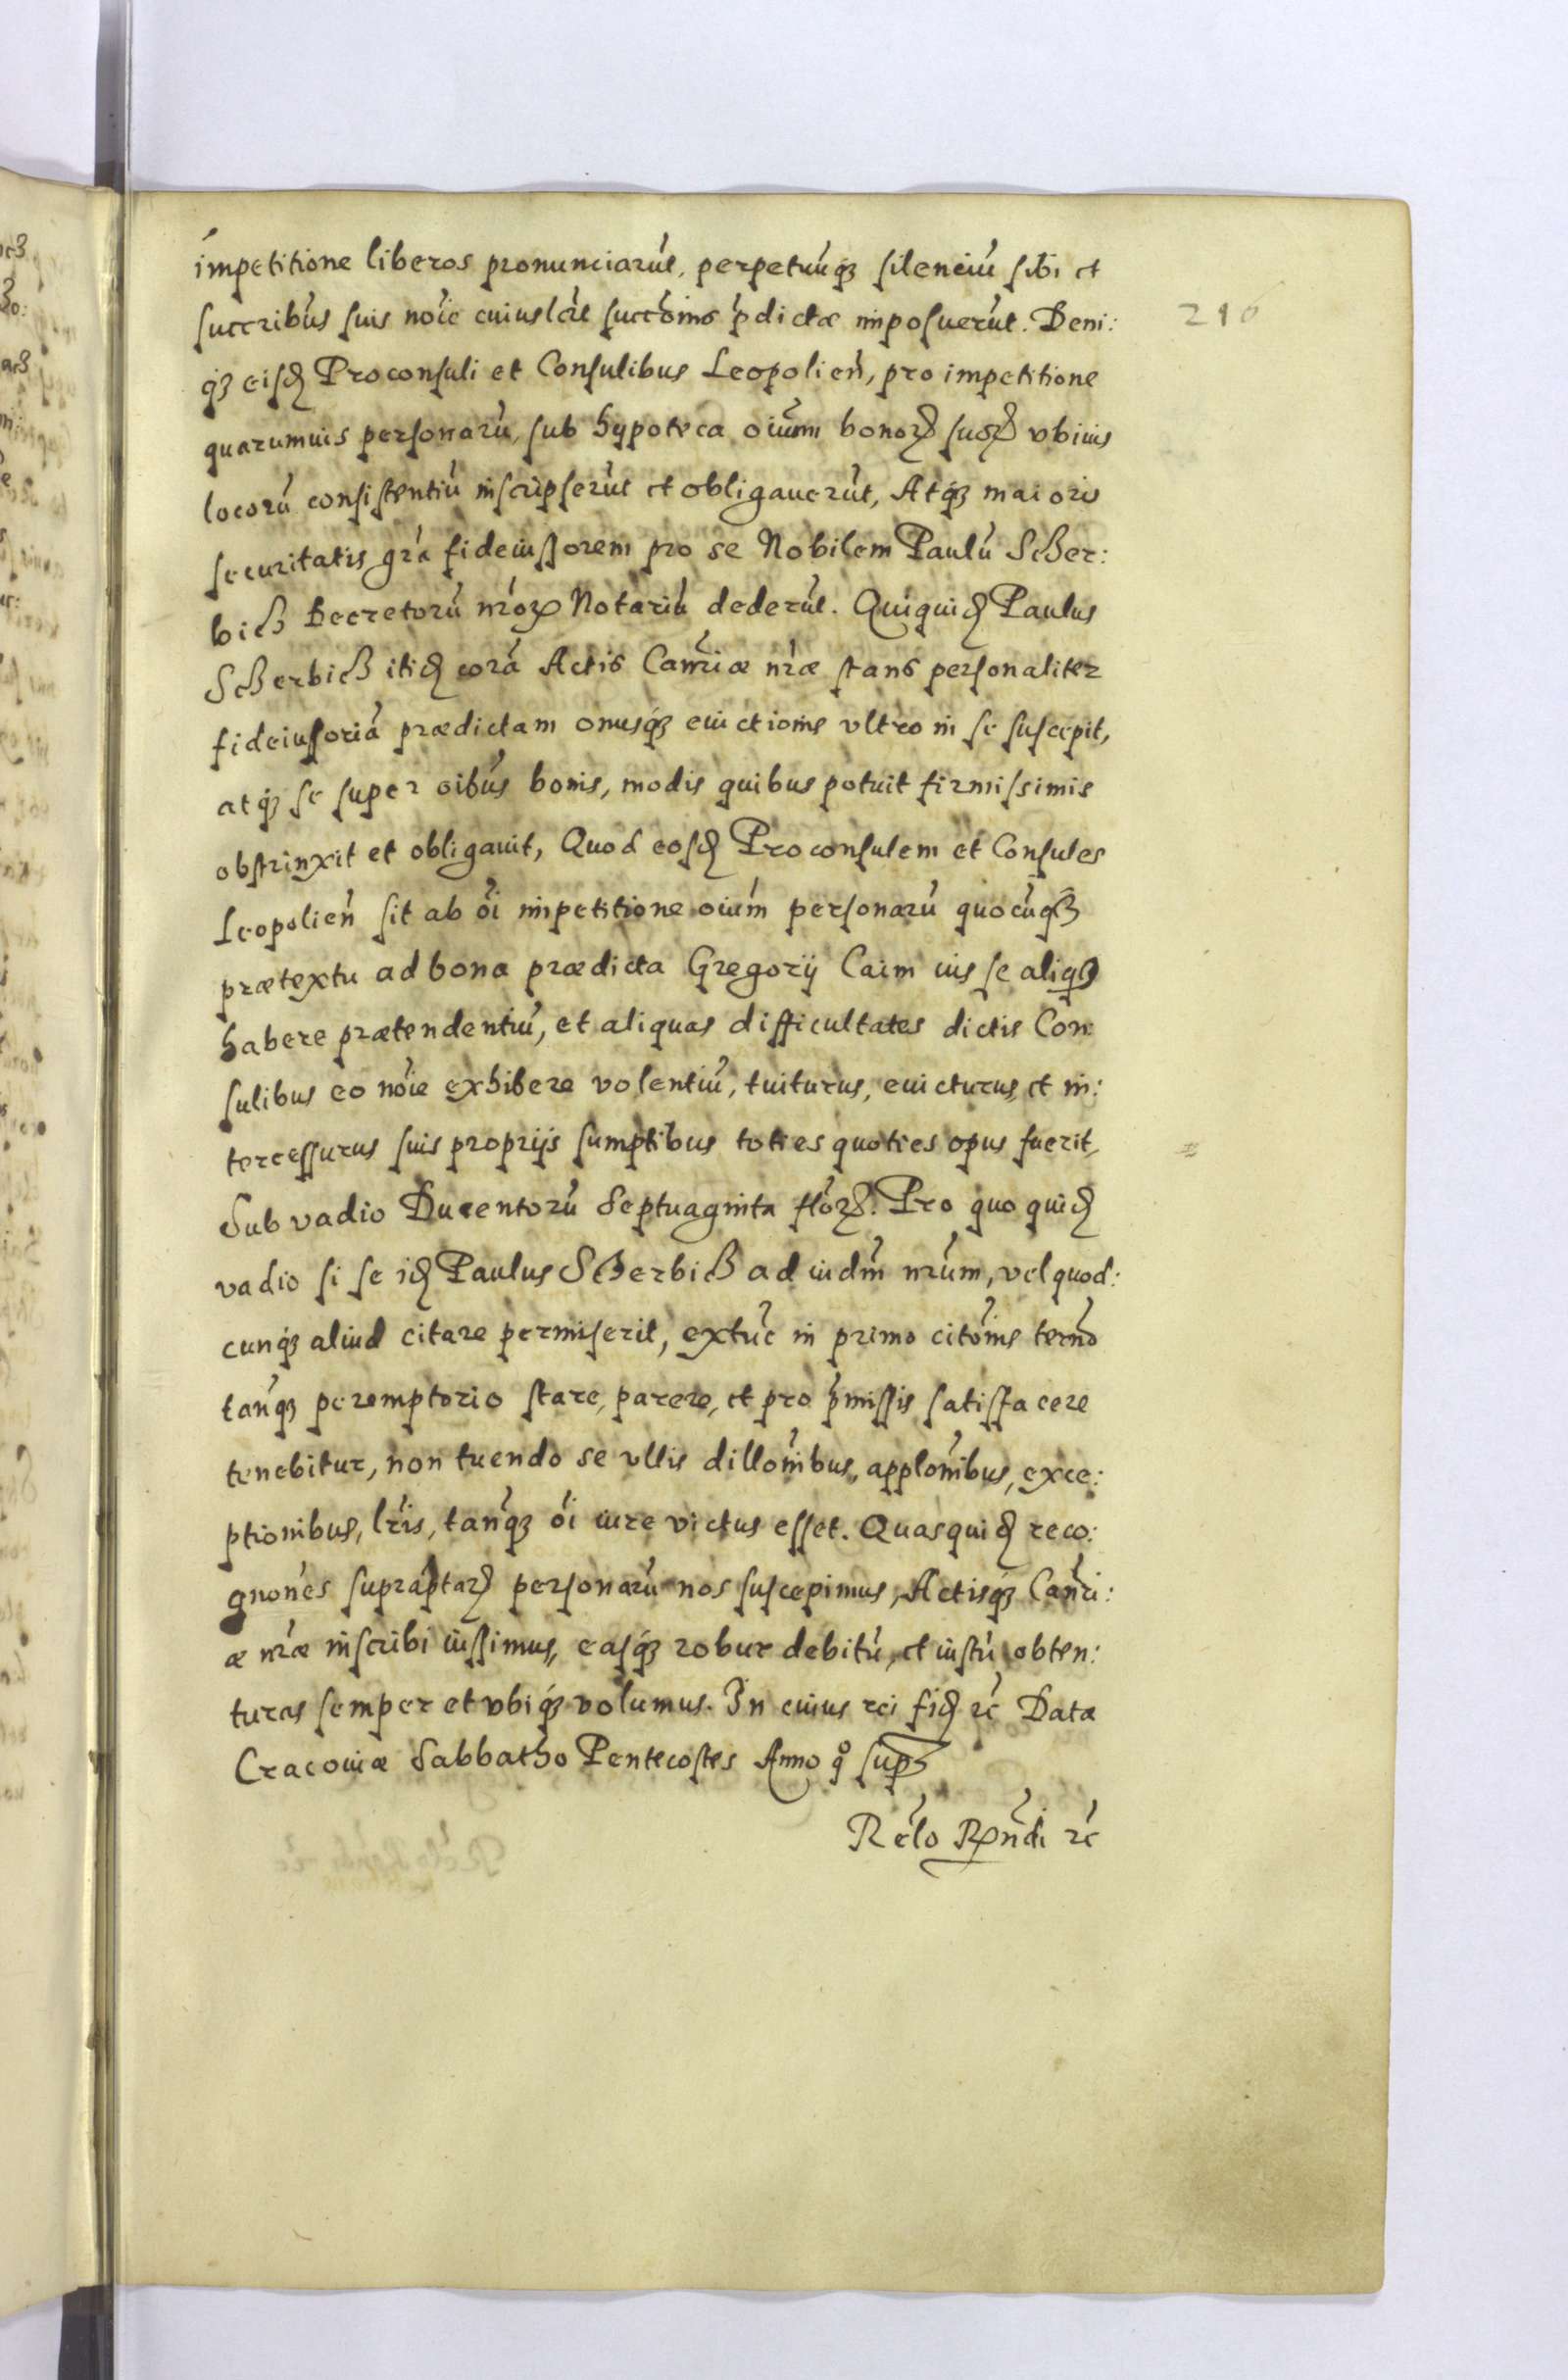 impetitione liberos pronunciarũt, perpetuũqꝫ silenciũ sibi et
succribũs suis noĩe cuiuslibet succõnis p̃dictæ imposuerũt. Deni:
qꝫ eisđ Proconsuli et Consulibus Leopolieñ, pro impetitione
quarumuis personarũ, sub hypoteca oium̃ bonoꝝ suoꝝ vbiuis
locorũ consistentiũ inscripserũt et obligauerũt, Atqꝫ maioris
securitatis gr̃a fideiussorem pro se Nobilem Paulũ Scher:
bich Decretorũ nr̃oꝝ Notariũ dederũt. Quiquiđ Paulus
Scherbich itiđ corã Actis Cancr̃iæ nr̃æ stans personaliter
fideiussoriã prædictam onusqꝫ euictionis vltro in se suscepit,
atqꝫ se super oibũs bonis, modis quibus potuit firmissimis
obstrinxit et obligauit, Quod eosđ Proconsulem et Consules
Leopolieñ sit ab oĩ impetitione oiũm personarũ quocũqꝫ
prætextu ad bona prædicta Gregorij Caim ius se aliqđ
habere prætendentiũ, et aliquas difficultates dictis Con
sulibus eo noĩe exhibere volentiũ, tuiturus, euicturus, et in:
tercessurus suis proprijs sumptibus toties quoties opus fuerit,
Sub vadio Ducentorũ Septuaginta flõꝝ. Pro quo quiđ
vadio si se iđ Paulus Scherbich ad iudm̃ nr̃um, vel quod:
cunqꝫ aliud citare permiserit, extũc in primo citõnis term̃o
tanq̃ꝫ peremptorio stare, parere, et pro p̃missis satisfacere
tenebitur, non tuendo se vllis dillõnibus, applõnibus, exce:
ptionibus, lr̃is, tanq̃ꝫ oĩ iure victus esset. Quasquiđ reco:
gnõnes suprap̃taꝝ personarũ nos suscepimus, Actisqꝫ Cancr̃i:
æ nr̃æ inscribi iussimus, easqꝫ robur debitũ, et iustũ obten:
turas semper et vbiqꝫ volumus. In cuius rei fiđ ꝛc̃ Datæ
Cracouiæ Sabbatho Pentecostes Anno qͦ sup̃
Rel̃o Rp̃ndi ꝛc̃
216